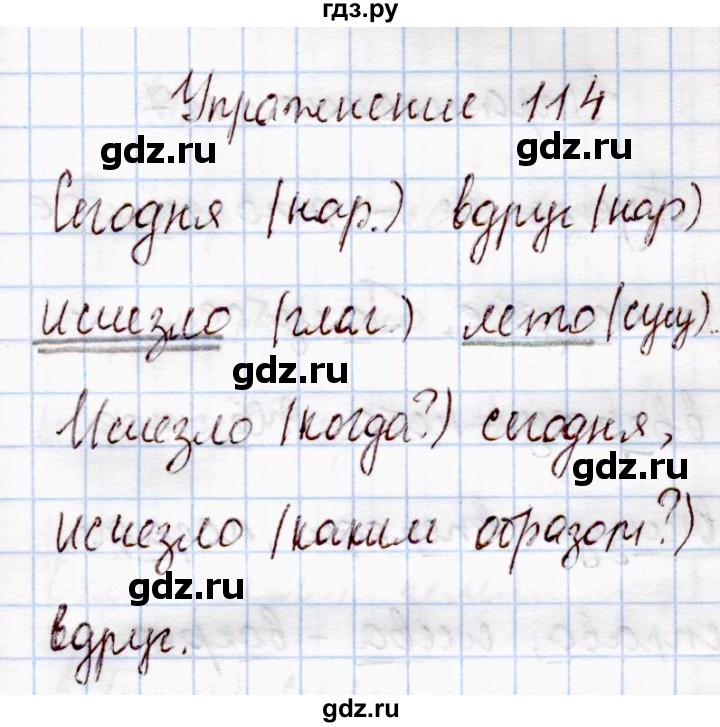 гдз.ру
Упражнение 114
gdz.ru gdz.ru
Сегодня (нар.) вдруг (нар)
исчезло (глаг.) лето (сущ).
gdz.ru
Исчезло (когда?) сегодня,
gdz.ru
исчезло (каким образом?)
gdz.ru gdz.ru
вдруг.
gdz.ru